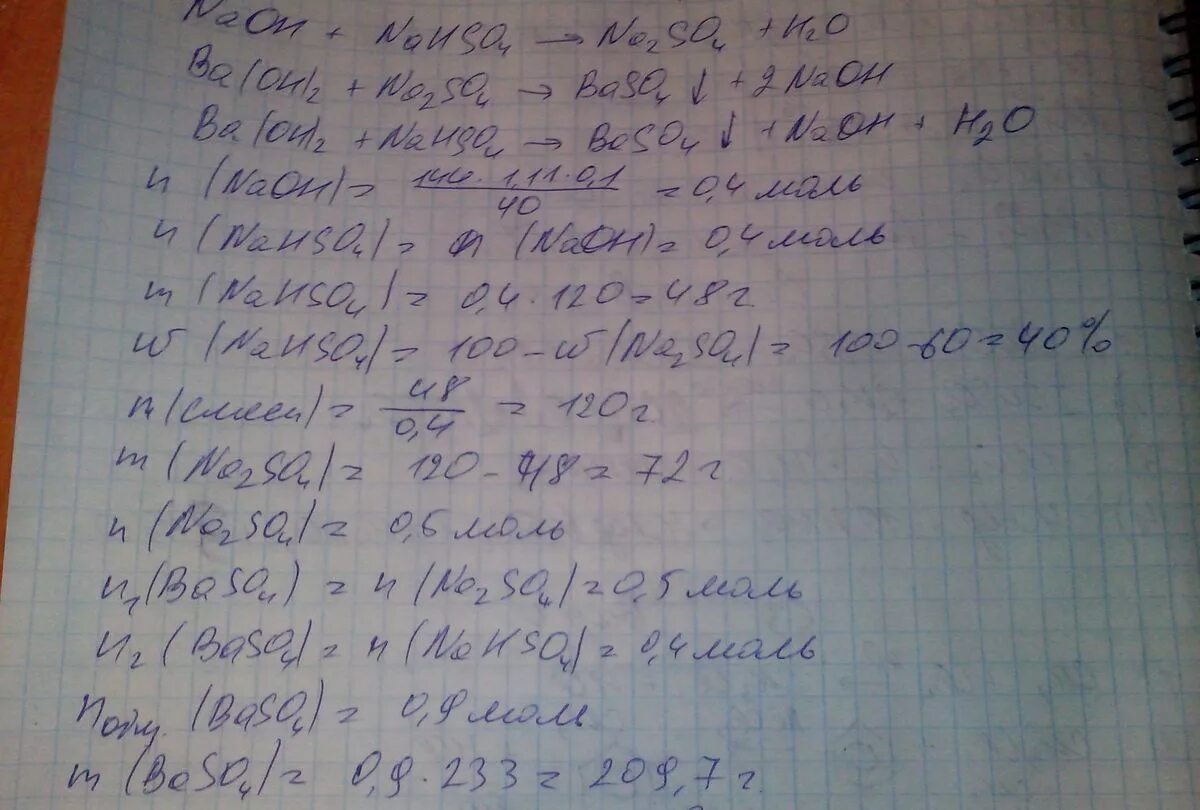 NaOH + NaHSO₄ → Na₂SO₄ + H₂O
Ba(OH)₂ + Na₂SO₄ → BaSO₄↓ + 2NaOH
Ba(OH)₂ + NaHSO₄ → BaSO₄↓ + NaOH + H₂O
n (NaOH) = 144·1,11·0,1 / 40 = 0,4 моль
n (NaHSO₄) = n (NaOH) = 0,4 моль
m (NaHSO₄) = 0,4·120 = 48 г.
ω (NaHSO₄) = 100 - ω (Na₂SO₄) = 100 - 60 = 40%
m (смеси) = 48 / 0,4 = 120 г.
m (Na₂SO₄) = 120 - 48 = 72 г
n (Na₂SO₄) = 0,5 моль
n₁ (BaSO₄) = n (Na₂SO₄) = 0,5 моль
n₂ (BaSO₄) = n (NaHSO₄) = 0,4 моль
nобщ. (BaSO₄) = 0,9 моль
m (BaSO₄) = 0,9·233 = 209,7 г.